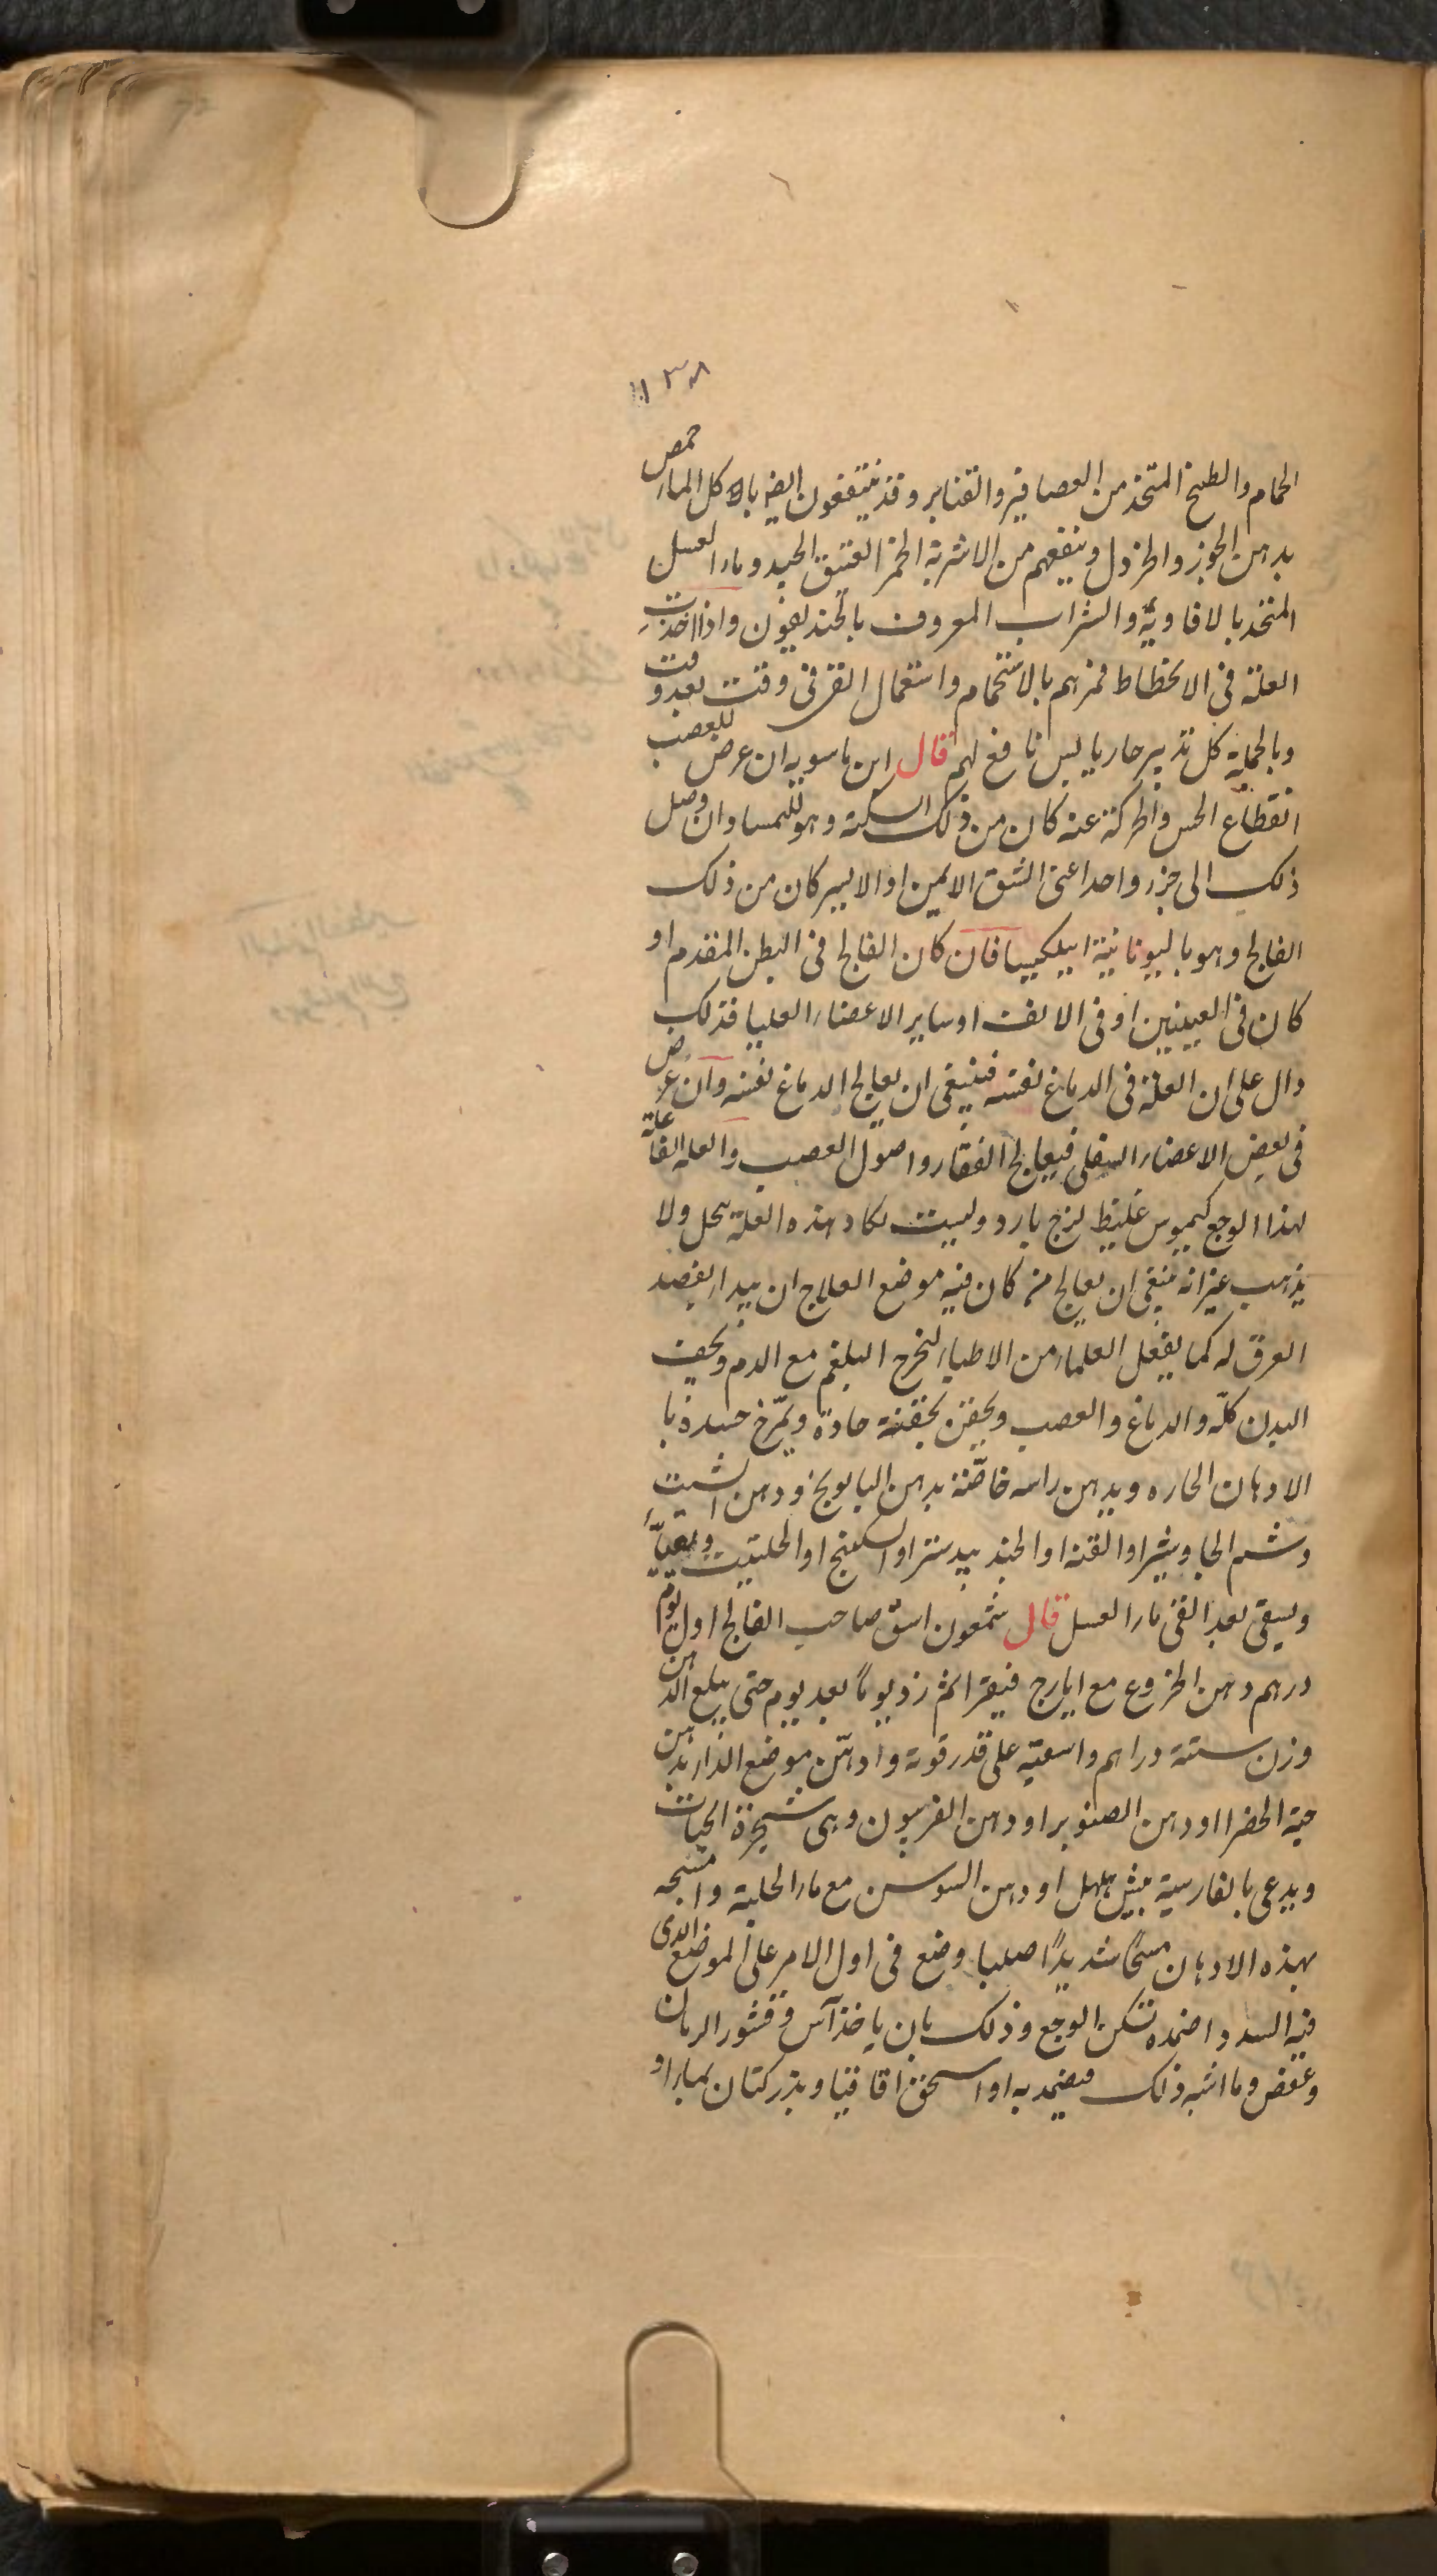 ١٣٨
الحمام والطبخ المتخذ من العصافير والقنابر وقد ينتفعون ايضا باكل الماء حمص
بدهن الجوز والخردل وينفعهم من الاشربة الخمر العتيق الجيد وماء العسل
المتخذ بالافاويه والشراب المعروف بالخنديقون واذا اخذت
العلة فى الانحطاط فمرهم بالاستحمام واستعمال القى فى وقت بعد وقت
وبالجملة كل تدبير حار يابس نافع لهم قال ابن ماسويه ان عرض للعصب
انقطاع الحس والحركة عنه كان من ذلك السكته وان وصل
ذلك الى جزء واحد اعنى الشق الايمن او الايسر كان من ذلك
الفالج وهو باليونانية ابيلكيسا فان كان الفالج فى البطن المقدم او
كان فى العينين او فى الانف او ساير الاعضاء العليا فذلك
دال على ان العلة فى الدماغ نفسه فينبغى ان يعالج الدماغ نفسه وان عرض
فى بعض الاعضاء السفلى فيعالج الفقار واصول العصب والعلة الفاعلة
لهذا الوجع كيموس غليظ لزج بارد وليست تكاد هذه العلة تحل ولا
يذهب غير انه ينبغى ان يعالج من كان فيه موضع العلاج ان يبدا بفصد
العرق له كما يفعل العلماء من الاطباء ليخرج البلغم مع الدم ويجفف
البدن كله والدماغ والعصب ويحقن بحقنة حادة ويمرخ جسده با
الادهان الحاره ويدهن راسه خاصّة بدهن البابونج ودهن الشبت
وشم الجاوشير او القنه او الجند بيدستر او السكبنج او الحلتيت ويقيّأ
ويسقى بعد القى ماء العسل قال شمعون اسق صاحب الفالج اول يوم
درهم دهن الخروع مع ايارج فيقرا ثم زد يوماً بعد يوم حتى يبلغ الدهن
وزن ستة دراهم واسقيه على قدر قوته وادهن موضع الداء بدهن
حبة الخضرا او دهن الصنوبر او دهن الفربيون وهى شجرة الحيات
ويدعى بالفارسية او دهن السوسن مع ماء الحلبة وامسحه
بهذه الادهان مسحاً شديداً صلبا وضع فى اول الامر على الموضع الذى
فيه السدد اضمده تسكن الوجع وذلك بان ياخذ آس وقشور الرمان
وعفص وما اشبه ذلك فيضمد به او اسحق اقاقيا وبزر كتان بماء او